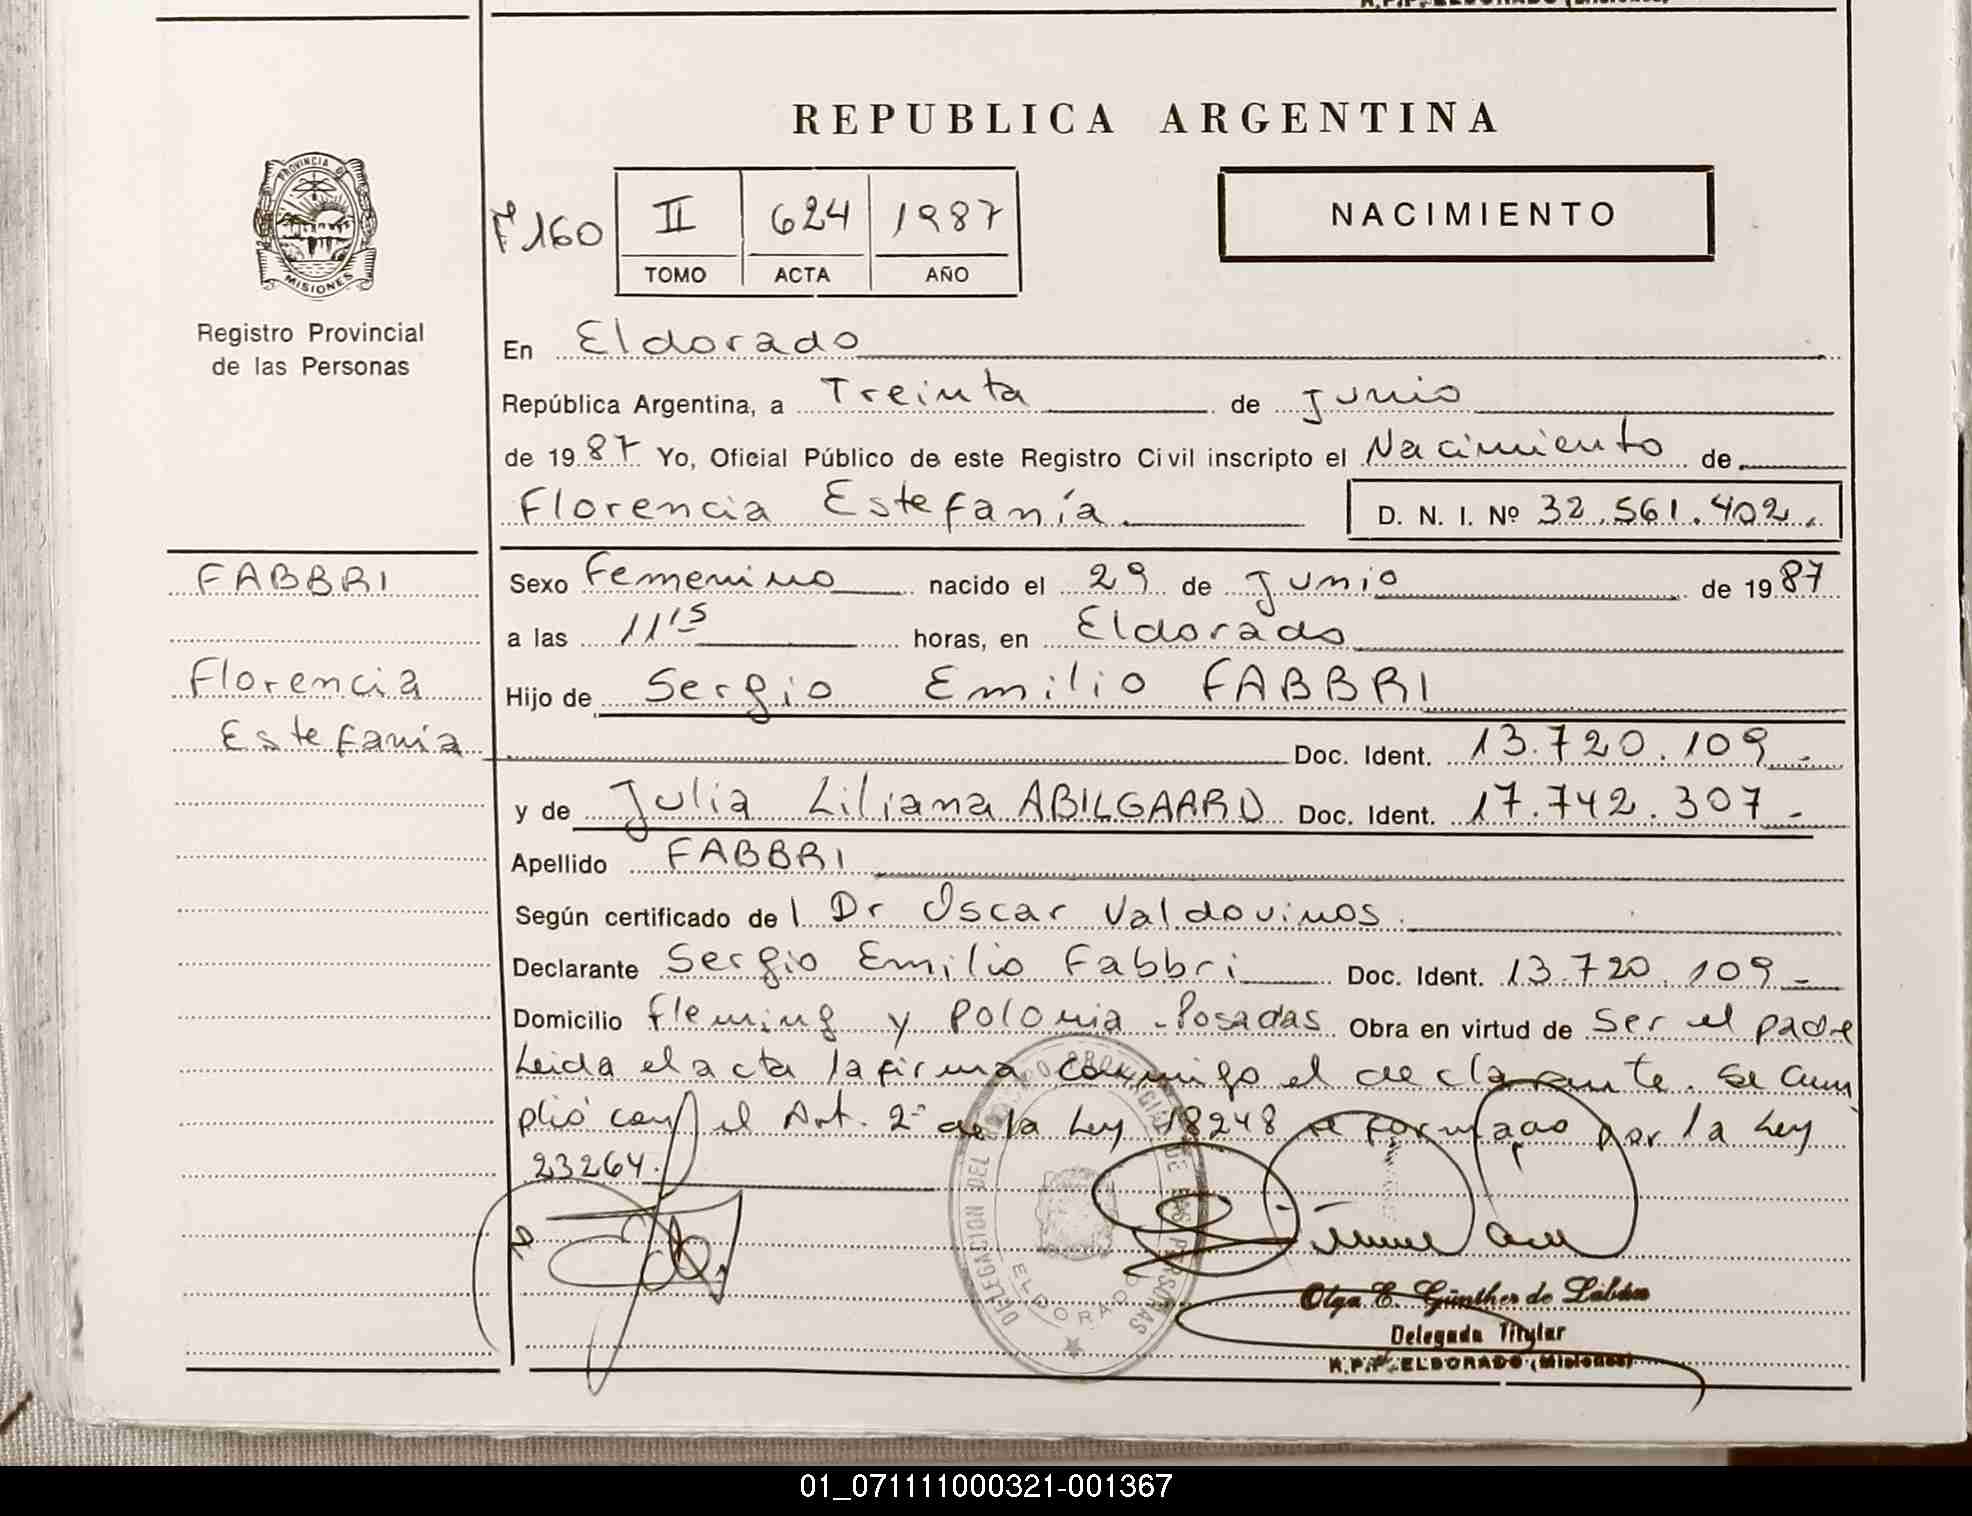 REPUBLICA ARGENTINA
PROVINCIA DE MISIONES
Registro Provincial
de las Personas
Fº 160 II 624 1987
TOMO ACTA AÑO
NACIMIENTO
En Eldorado
República Argentina, a Treinta de junio
de 1987 Yo, Oficial Público de este Registro Civil inscripto el Nacimiento de
Florencia Estefanía D. N. I. Nº 32.561.402.
FABBRI
Florencia
Estefanía
Sexo Femenino nacido el 29 de junio de 1987
a las 11 15 horas, en Eldorado
Hijo de Sergio Emilio FABBRI
Doc. Ident. 13.720.109.-
y de Julia Liliana ABILGAARD Doc. Ident. 17.742.307.-
Apellido FABBRI
Según certificado del Dr Oscar Valdovinos.
Declarante Sergio Emilio Fabbri Doc. Ident. 13.720.109.-
Domicilio Fleming y Polonia - Posadas Obra en virtud de Ser el padre
Leida el acta la firma conmigo el declarante. Se cum
plió con el Art. 2º de la Ley 18248 reformado por la Ley
23264.
DELEGACION DEL REGISTRO PROVINCIAL DE LAS PERSONAS
ELDORADO
Olga E. Günther de Labán
Delegada Titular
R.P.P. ELDORADO (Misiones)
01_071111000321-001367